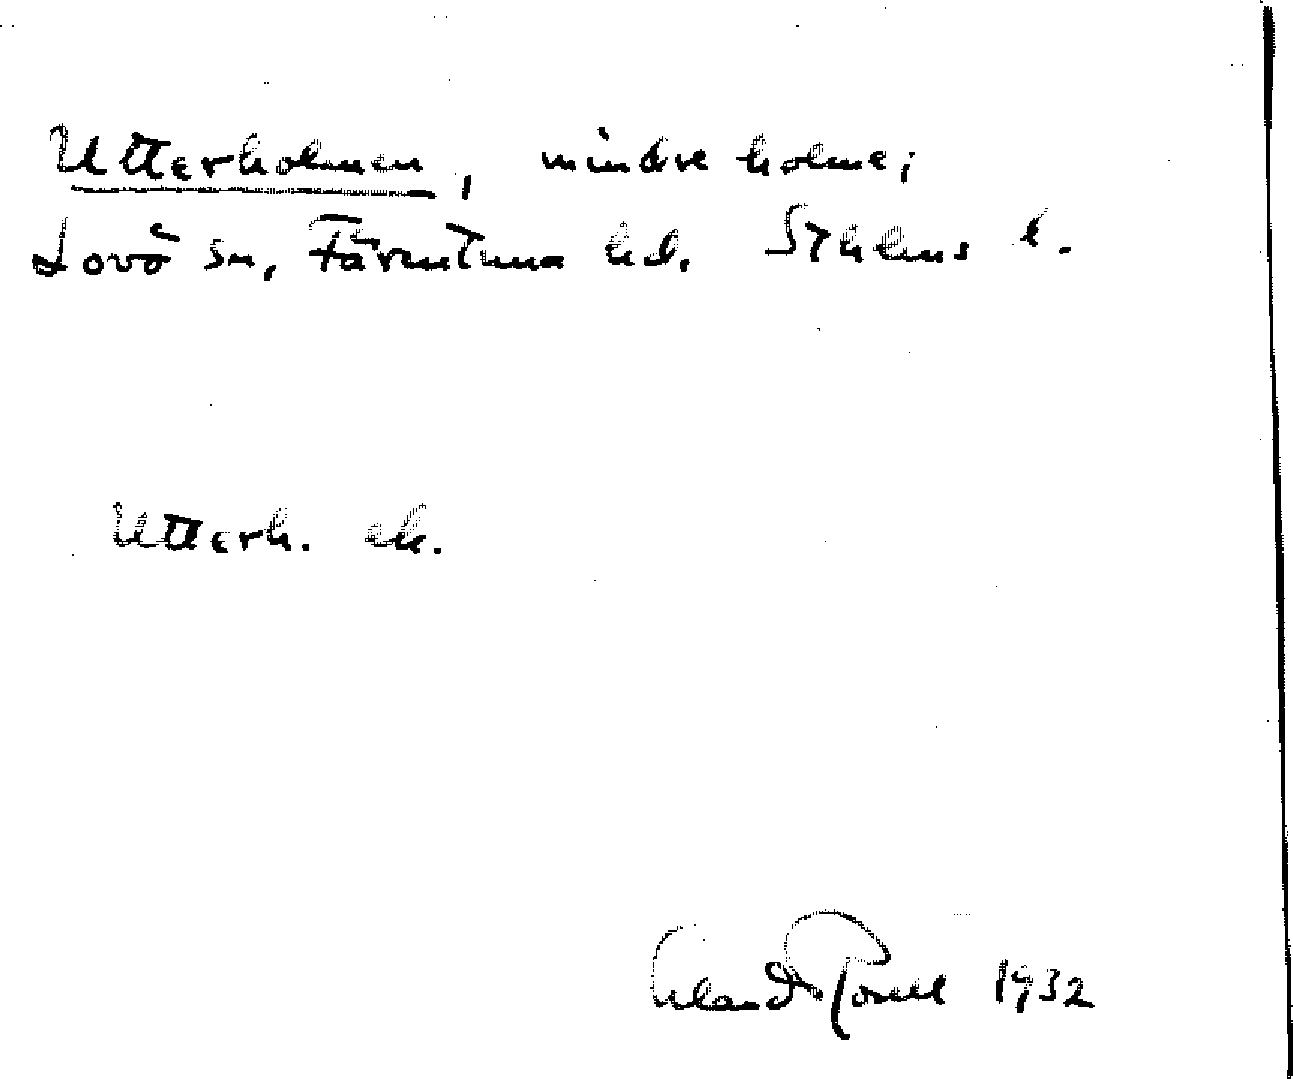 Utterholmen, mindre holme i
Lovö sn, Färentuna hd. Sthlms l.
Utterh. ek.
Erland Rosell 1932